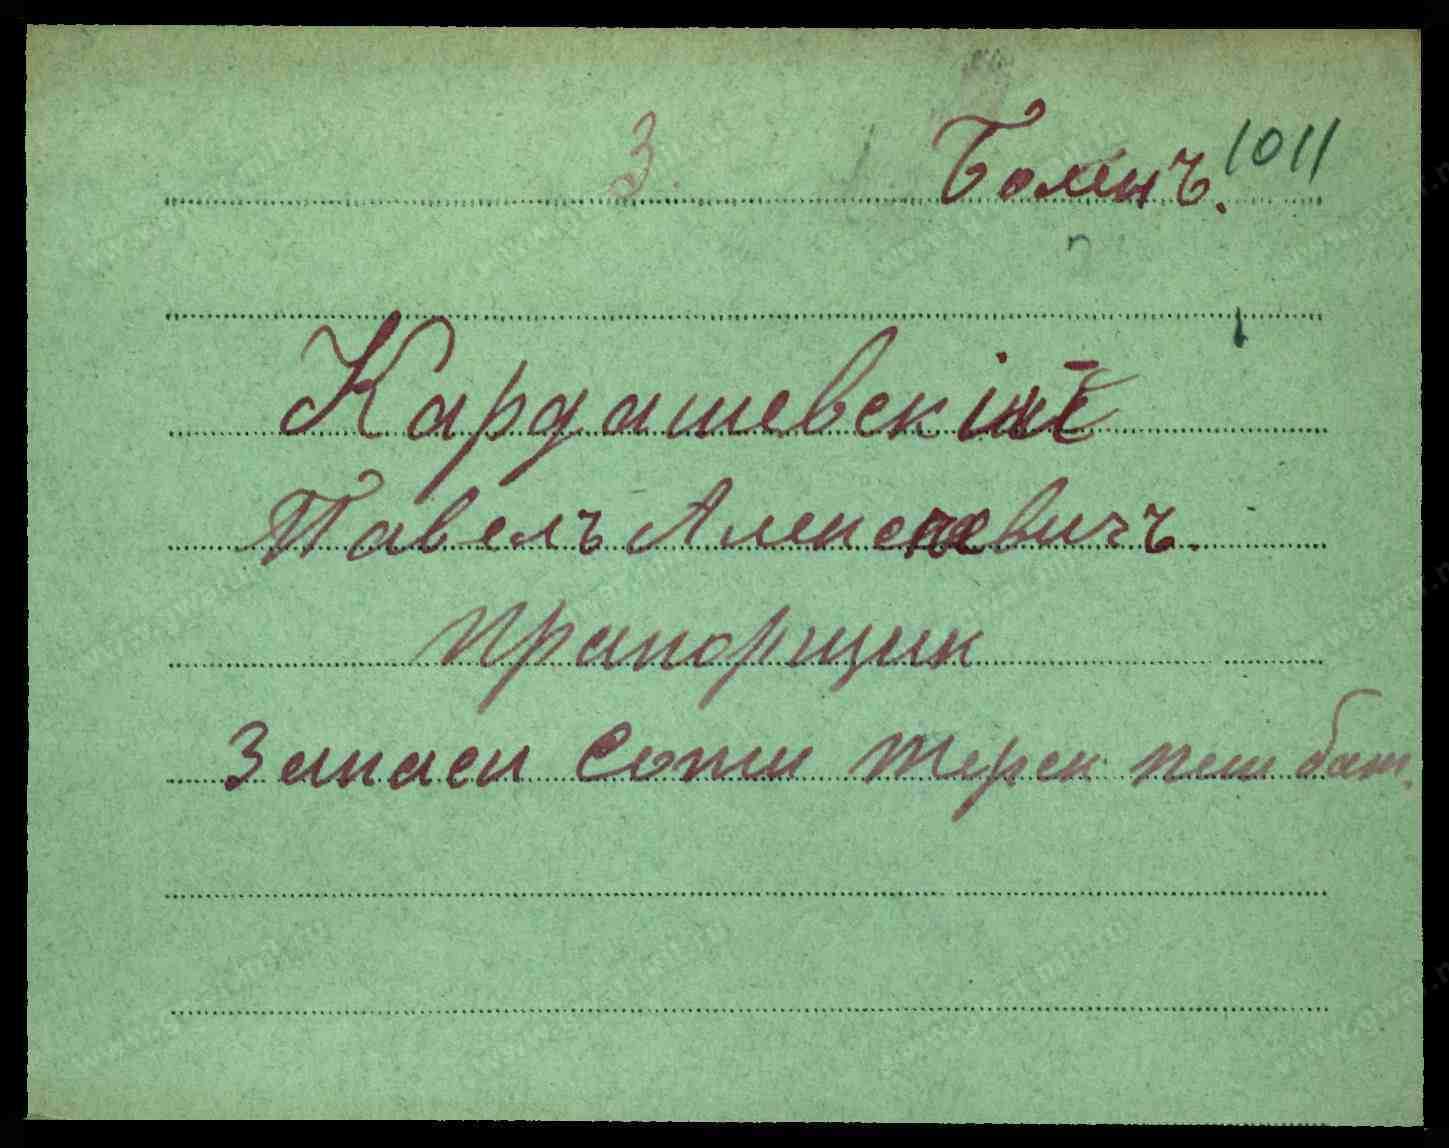 3. Боленъ. 1011
Кардашевскій
Павелъ Алексѣевичъ.
Прапорщик
Запасн Сотни Терск пеш бат.